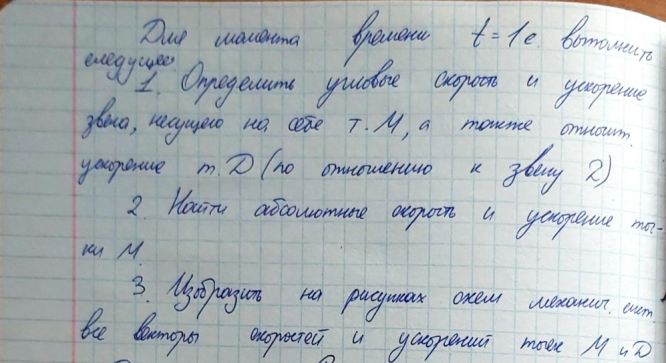 Для момента времени t = 1 с. выполнить
следущее
1. Определить угловые скорость и ускорение
звена, несущего на себе т. М, а также относит.
ускорение т. D (по отношению к звену 2)
2. Найти абсолютные скорость и ускорение точ-
ки М.
3. Изобразить на рисунках схем механич. сист.
все векторы скоростей и ускорений точек М и D